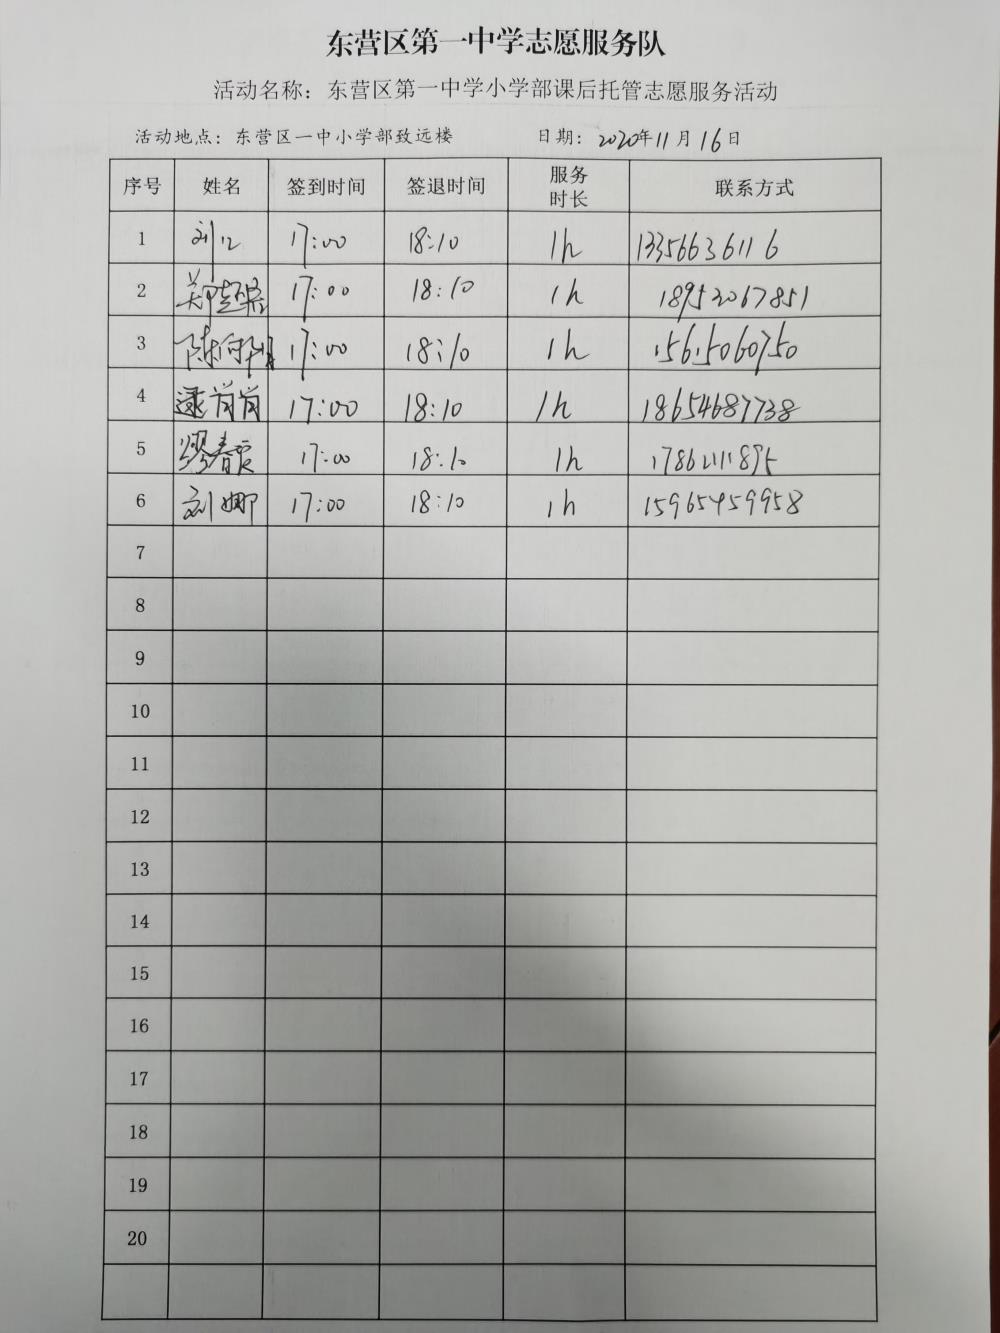 东营区第一中学志愿服务队
活动名称：东营区第一中学小学部课后托管志愿服务活动
活动地点：东营区一中小学部致远楼 日期：2020年11月16日
序号 姓名 签到时间 签退时间 服务时长 联系方式
1 17:00 18:10 1h 13356636116
2 17:00 18:10 1h 18952067851
3 17:00 18:10 1h 15615060750
4 逯肖肖 17:00 18:10 1h 18654687738
5 17:00 18:10 1h 17862111895
6 刘娜 17:00 18:10 1h 15965459958
7
8
9
10
11
12
13
14
15
16
17
18
19
20